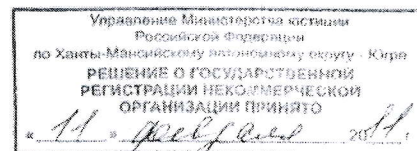 Управление Министерства юстиции
Российской Федерации
по Ханты-Мансийскому автономному округу - Югре
РЕШЕНИЕ О ГОСУДАРСТВЕННОЙ
РЕГИСТРАЦИИ НЕКОММЕРЧЕСКОЙ
ОРГАНИЗАЦИИ ПРИНЯТО
« 11 » февраля 2011 г.